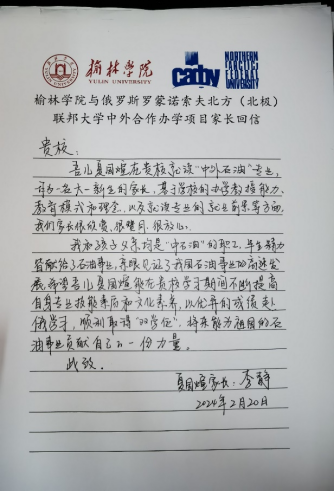 榆林学院
YULIN UNIVERSITY
NORTHERN
(ARCTIC)
FEDERAL
UNIVERSITY
榆林学院与俄罗斯罗蒙诺索夫北方（北极）
联邦大学中外合作办学项目家长回信
贵校：
吾儿夏国煊在贵校就读“中外石油”专业，
作为一名大一新生的家长，基于学校的办学教授能力、
教育模式和理念，以及就读专业的就业前景等方面，
我们家长很欣赏、很瞩目、很放心。
我和孩子父亲均是“中石油”的职工，毕生精力
皆献给了石油事业，亲眼见证了我国石油事业的高速发
展。希望吾儿夏国煊能在贵校学习期间不断提高
自身专业技能素质和文化素养，以优异的成绩赴
俄学习，顺利取得“双学位”，将来能为祖国的石
油事业贡献自己的一份力量。
此致。
夏国煊家长：李静
2024年2月20日